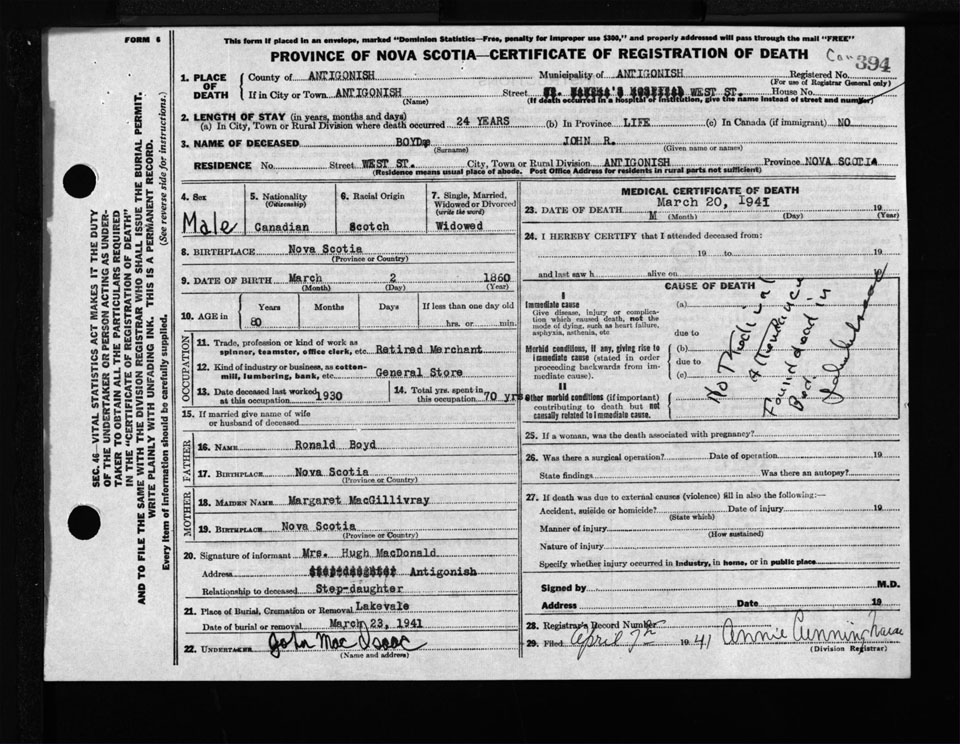 FORM 6
This form if placed in an envelope, marked "Dominion Statistics—Free, penalty for improper use $300," and properly addressed will pass through the mail "FREE"
PROVINCE OF NOVA SCOTIA—CERTIFICATE OF REGISTRATION OF DEATH
394
1. PLACE OF DEATH
County of ANTIGONISH Municipality of ANTIGONISH Registered No.
(For use of Registrar General only)
If in City or Town ANTIGONISH Street WEST ST. House No.
(Name) (If death occurred in a hospital or institution, give the name instead of street and number)
2. LENGTH OF STAY (in years, months and days)
(a) In City, Town or Rural Division where death occurred 24 YEARS (b) In Province LIFE (c) In Canada (if immigrant) NO
3. NAME OF DECEASED BOYD JOHN R.
(Surname) (Given name or names)
RESIDENCE No. Street WEST ST. City, Town or Rural Division ANTIGONISH Province NOVA SCOTIA
(Residence means usual place of abode. Post Office Address for residents in rural parts not sufficient)
4. Sex
Male
5. Nationality
(Citizenship)
Canadian
6. Racial Origin
Scotch
7. Single, Married, Widowed or Divorced
(write the word)
Widowed
8. BIRTHPLACE Nova Scotia
(Province or Country)
9. DATE OF BIRTH March 2 1860
(Month) (Day) (Year)
10. AGE in Years Months Days If less than one day old
80 hrs. or min.
OCCUPATION
11. Trade, profession or kind of work as
spinner, teamster, office clerk, etc. Retired Merchant
12. Kind of industry or business, as cotton-
mill, lumbering, bank, etc. General Store
13. Date deceased last worked
at this occupation 1930
14. Total yrs. spent in
this occupation 70 yrs
15. If married give name of wife
or husband of deceased
FATHER
16. NAME Ronald Boyd
17. BIRTHPLACE Nova Scotia
(Province or Country)
MOTHER
18. MAIDEN NAME Margaret MacGillivray
19. BIRTHPLACE Nova Scotia
(Province or Country)
20. Signature of informant Mrs. Hugh MacDonald
Address Antigonish
Relationship to deceased Step-daughter
21. Place of Burial, Cremation or Removal Lakevale
Date of burial or removal March 23, 1941
22. UNDERTAKER John MacIsaac
(Name and address)
MEDICAL CERTIFICATE OF DEATH
23. DATE OF DEATH March 20, 1941 19
M (Month) (Day) (Year)
24. I HEREBY CERTIFY that I attended deceased from:
19 to 19
and last saw h alive on 19
CAUSE OF DEATH
I
Immediate cause
Give disease, injury or complica-
tion which caused death, not the
mode of dying, such as heart failure,
asphyxia, asthenia, etc.
(a)
due to
Morbid conditions, if any, giving rise to
immediate cause (stated in order
proceeding backwards from im-
mediate cause).
(b)
due to
(c)
II
Other morbid conditions (if important)
contributing to death but not
causally related to immediate cause.
No Medical
Attendance
Found dead in
Bed
25. If a woman, was the death associated with pregnancy?
26. Was there a surgical operation? Date of operation 19
State findings Was there an autopsy?
27. If death was due to external causes (violence) fill in also the following:—
Accident, suicide or homicide? Date of injury 19
(State which)
Manner of injury
(How sustained)
Nature of injury
Specify whether injury occurred in industry, in home, or in public place
Signed by M.D.
Address Date 19
28. Registrar's Record Number
29. Filed April 7th 1941 Annie Cunningham
(Division Registrar)
SEC. 46—VITAL STATISTICS ACT MAKES IT THE DUTY
OF THE UNDERTAKER OR PERSON ACTING AS UNDER-
TAKER TO OBTAIN ALL THE PARTICULARS REQUIRED
IN THE "CERTIFICATE OF REGISTRATION OF DEATH"
AND TO FILE THE SAME WITH THE DIVISION REGISTRAR WHO SHALL ISSUE THE BURIAL PERMIT.
WRITE PLAINLY WITH UNFADING INK. THIS IS A PERMANENT RECORD.
Every item of information should be carefully supplied. (See reverse side for instructions.)